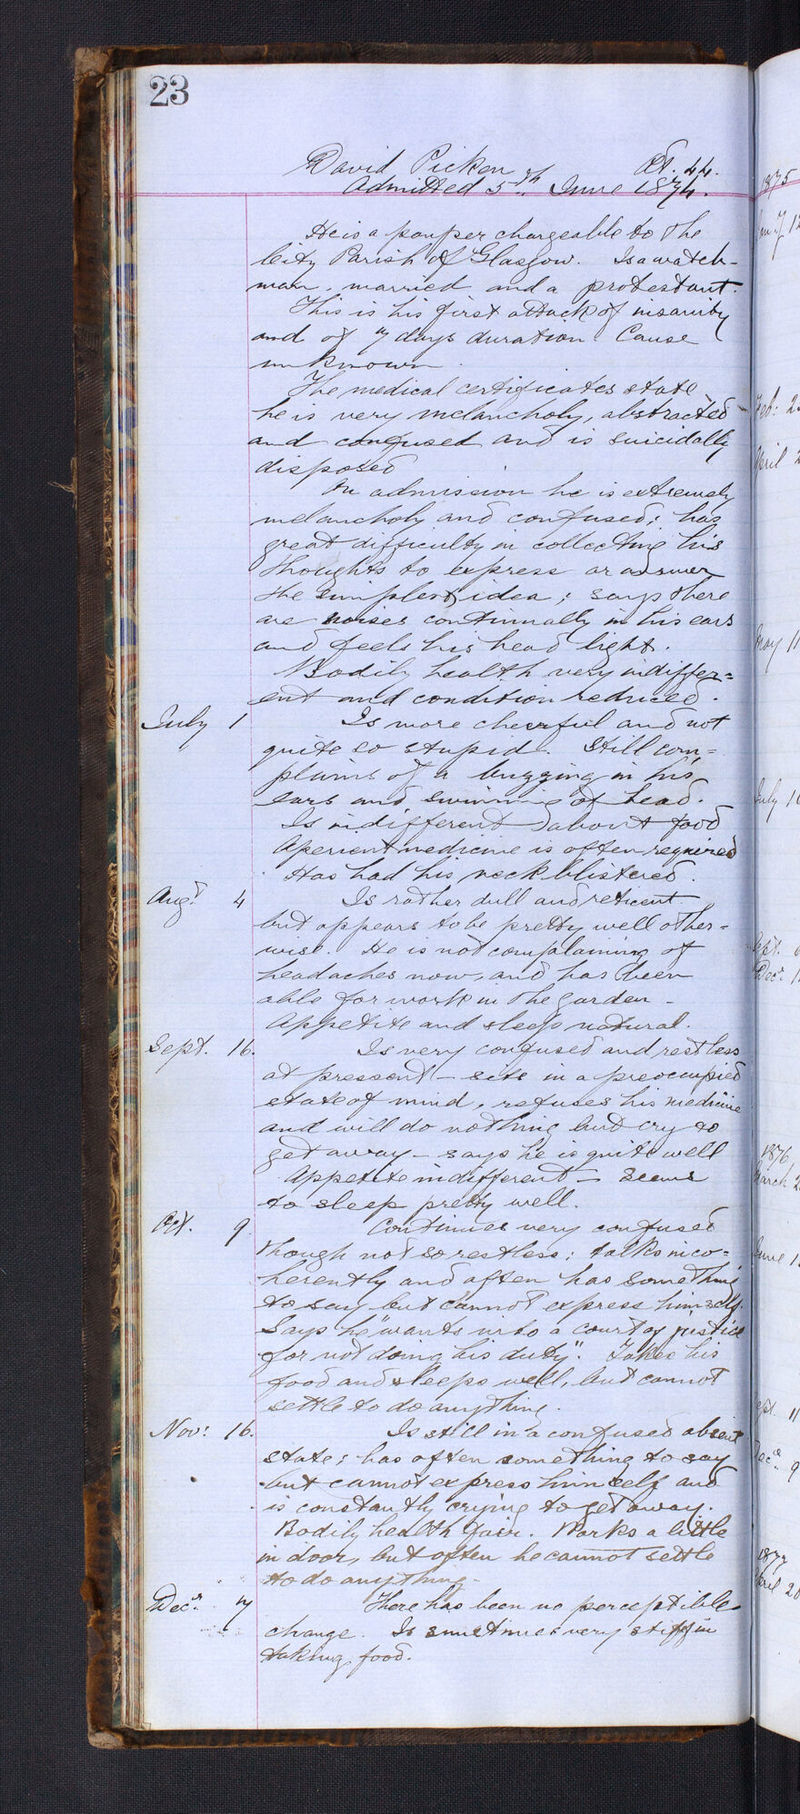 23
David Picken Æt. 44.
Admitted 5th June 1874.
He is a pauper chargeable to the
City Parish of Glasgow. Is a watch-
man, married and a protestant.
This is his first attack of insanity
and of 7 days duration. Cause
unknown.
The medical certificates state
he is very melancholy, abstracted
and confused and is suicidally
disposed
On admission he is extremely
melancholy and confused; has
great difficulty in collecting his
thoughts to express or answer
the simplest idea; says there
are noises continually in his ears
and feels his head light.
Bodily health very indiffer=
ent and condition reduced.
July 1 Is more cheerful and not
quite so stupid. Still com=
plains of a buzzing in his
ears and swimming of head.
Is indifferent about food
Aperient medicine is often required
Has had his neck blistered.
Augt. 4 Is rather dull and reticent
but appears to be pretty well other-
wise. He is not complaining of
headaches now, and has been
able for work in the garden -
Appetite and sleep natural.
Sept. 16. Is very confused and restless
at present - sits in a preoccupied
state of mind, refuses his medicine
and will do nothing but cry to
get away - says he is quite well
Appetite indifferent - seems
to sleep pretty well.
Oct. 9 Continues very confused
though not so restless; talks inco=
herently and often has something
to say but cannot express himself.
Says he "wants into a court of justice
for not doing his duty". Takes his
food and sleeps well, but cannot
settle to do anything.
Nov: 16. Is still in a confused absent
state; has often something to say
but cannot express himself and
is constantly crying to get away.
Bodily health fair. Works a little
in door, but often he cannot settle
to do anything -
Decr. 7 There has been no perceptible
change. Is sometimes very stiff in
taking food.
1875
Feb: 2
April 2
May 11
July 1
Sept.
Decr. 1
1876
March 2
June 1
Sept 11
Decr. 9
1877
April 2